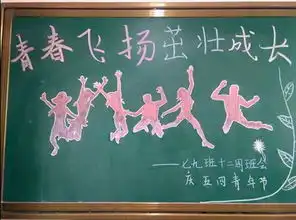 青春飞扬茁壮成长
——七九班十二周班会
庆五四青年节